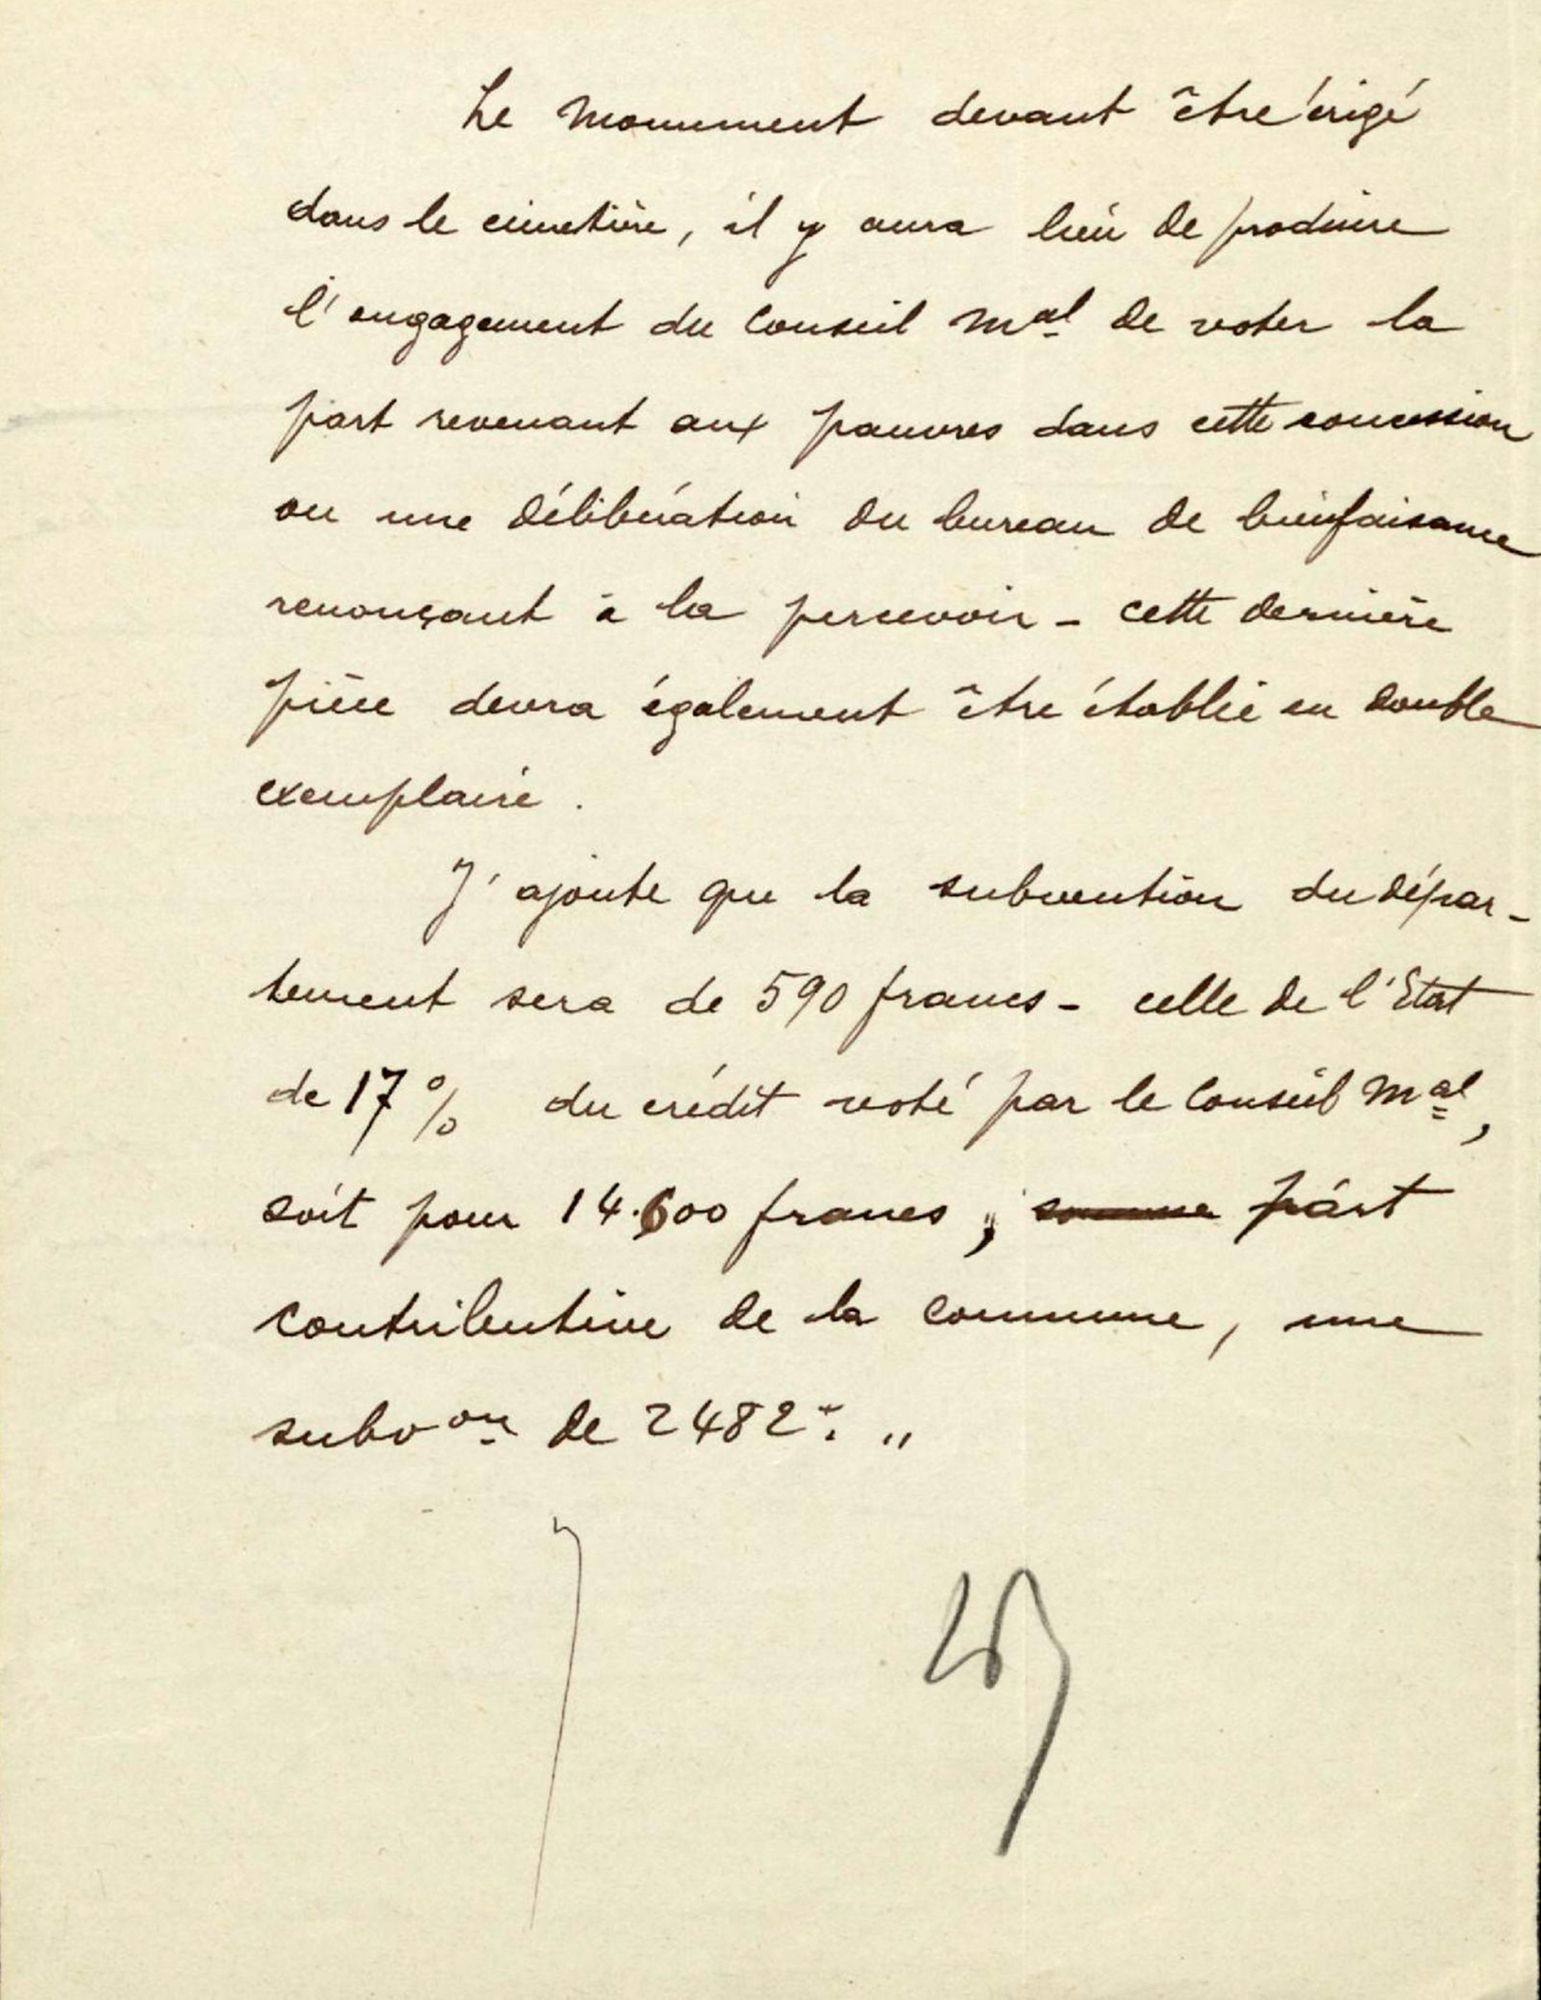 Le monument devant être érigé
dans le cimetière, il y aura lieu de produire
l'engagement du Conseil mal de voter la
part revenant aux pauvres dans cette concession
ou une délibération du bureau de bienfaisance
renonçant à la percevoir - cette dernière
pièce devra également être établie en double
exemplaire.
J'ajoute que la subvention du dépar-
tement sera de 590 francs - celle de l'Etat
de 17% du crédit voté par le Conseil mal,
soit pour 14.600 francs, somme part
contributive de la commune, une
subvon de 2482f. "